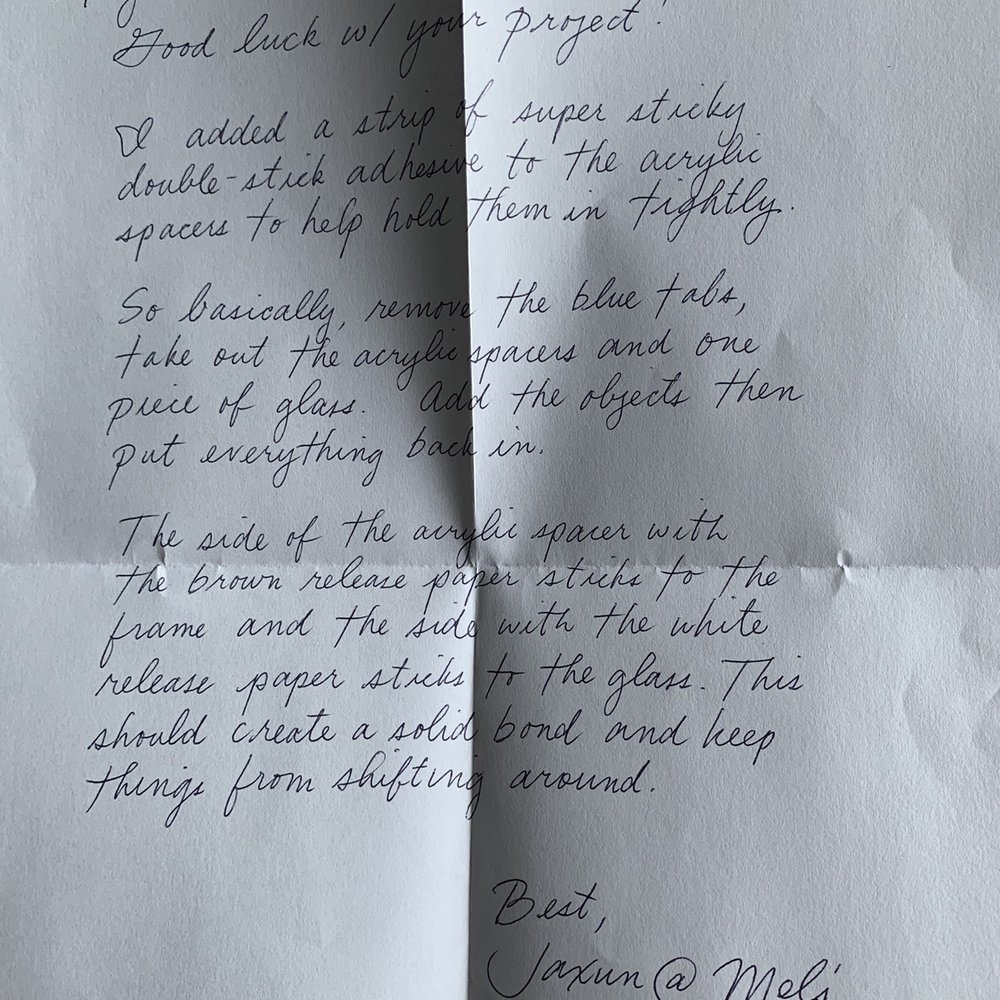 Good luck w/ your project!
I added a strip of super sticky
double-stick adhesive to the acrylic
spacers to help hold them in tightly.
So basically, remove the blue tabs,
take out the acrylic spacers and one
piece of glass. Add the objects then
put everything back in.
The side of the acrylic spacer with
the brown release paper sticks to the
frame and the side with the white
release paper sticks to the glass. This
should create a solid bond and keep
things from shifting around.
Best,
Jaxun @ Meli